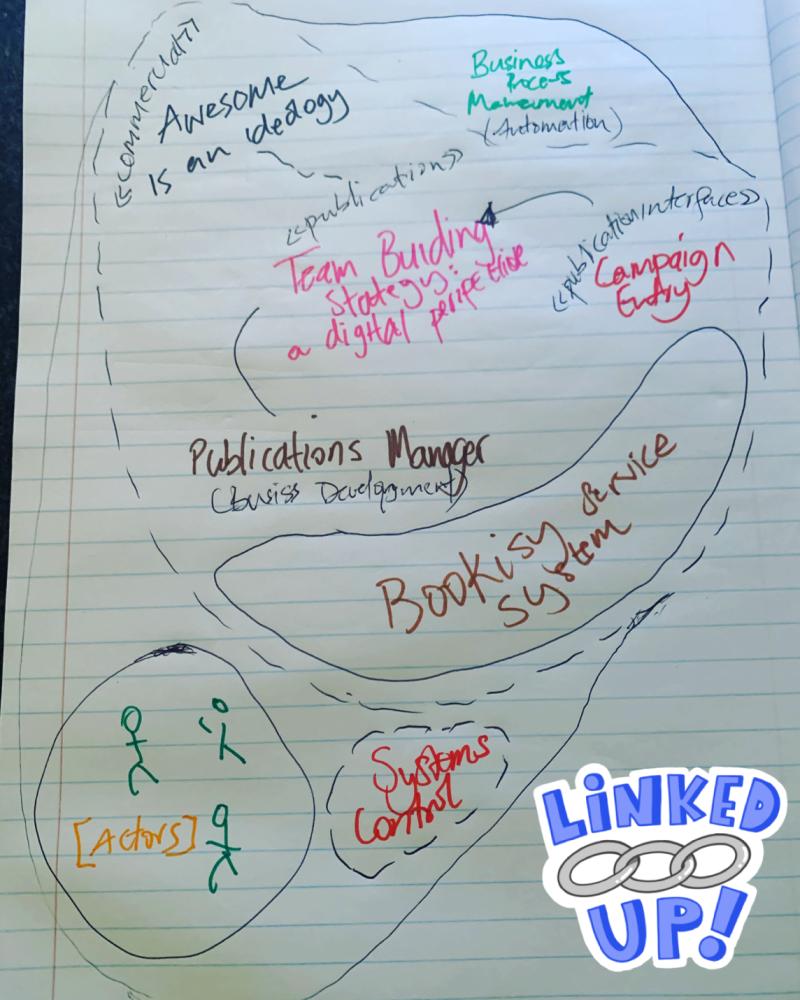 «commercial»
Awesome
is an ideology
Business
Process
Management
(Automation)
«publications»
«publicationinterfaces»
Team Buiding
Strategy:
a digital perspective
Campaign
Entry
Publications Manager
(Busiss Development)
Bookisy Service
System
Systems
Control
[Actors]
LiNKED
UP!